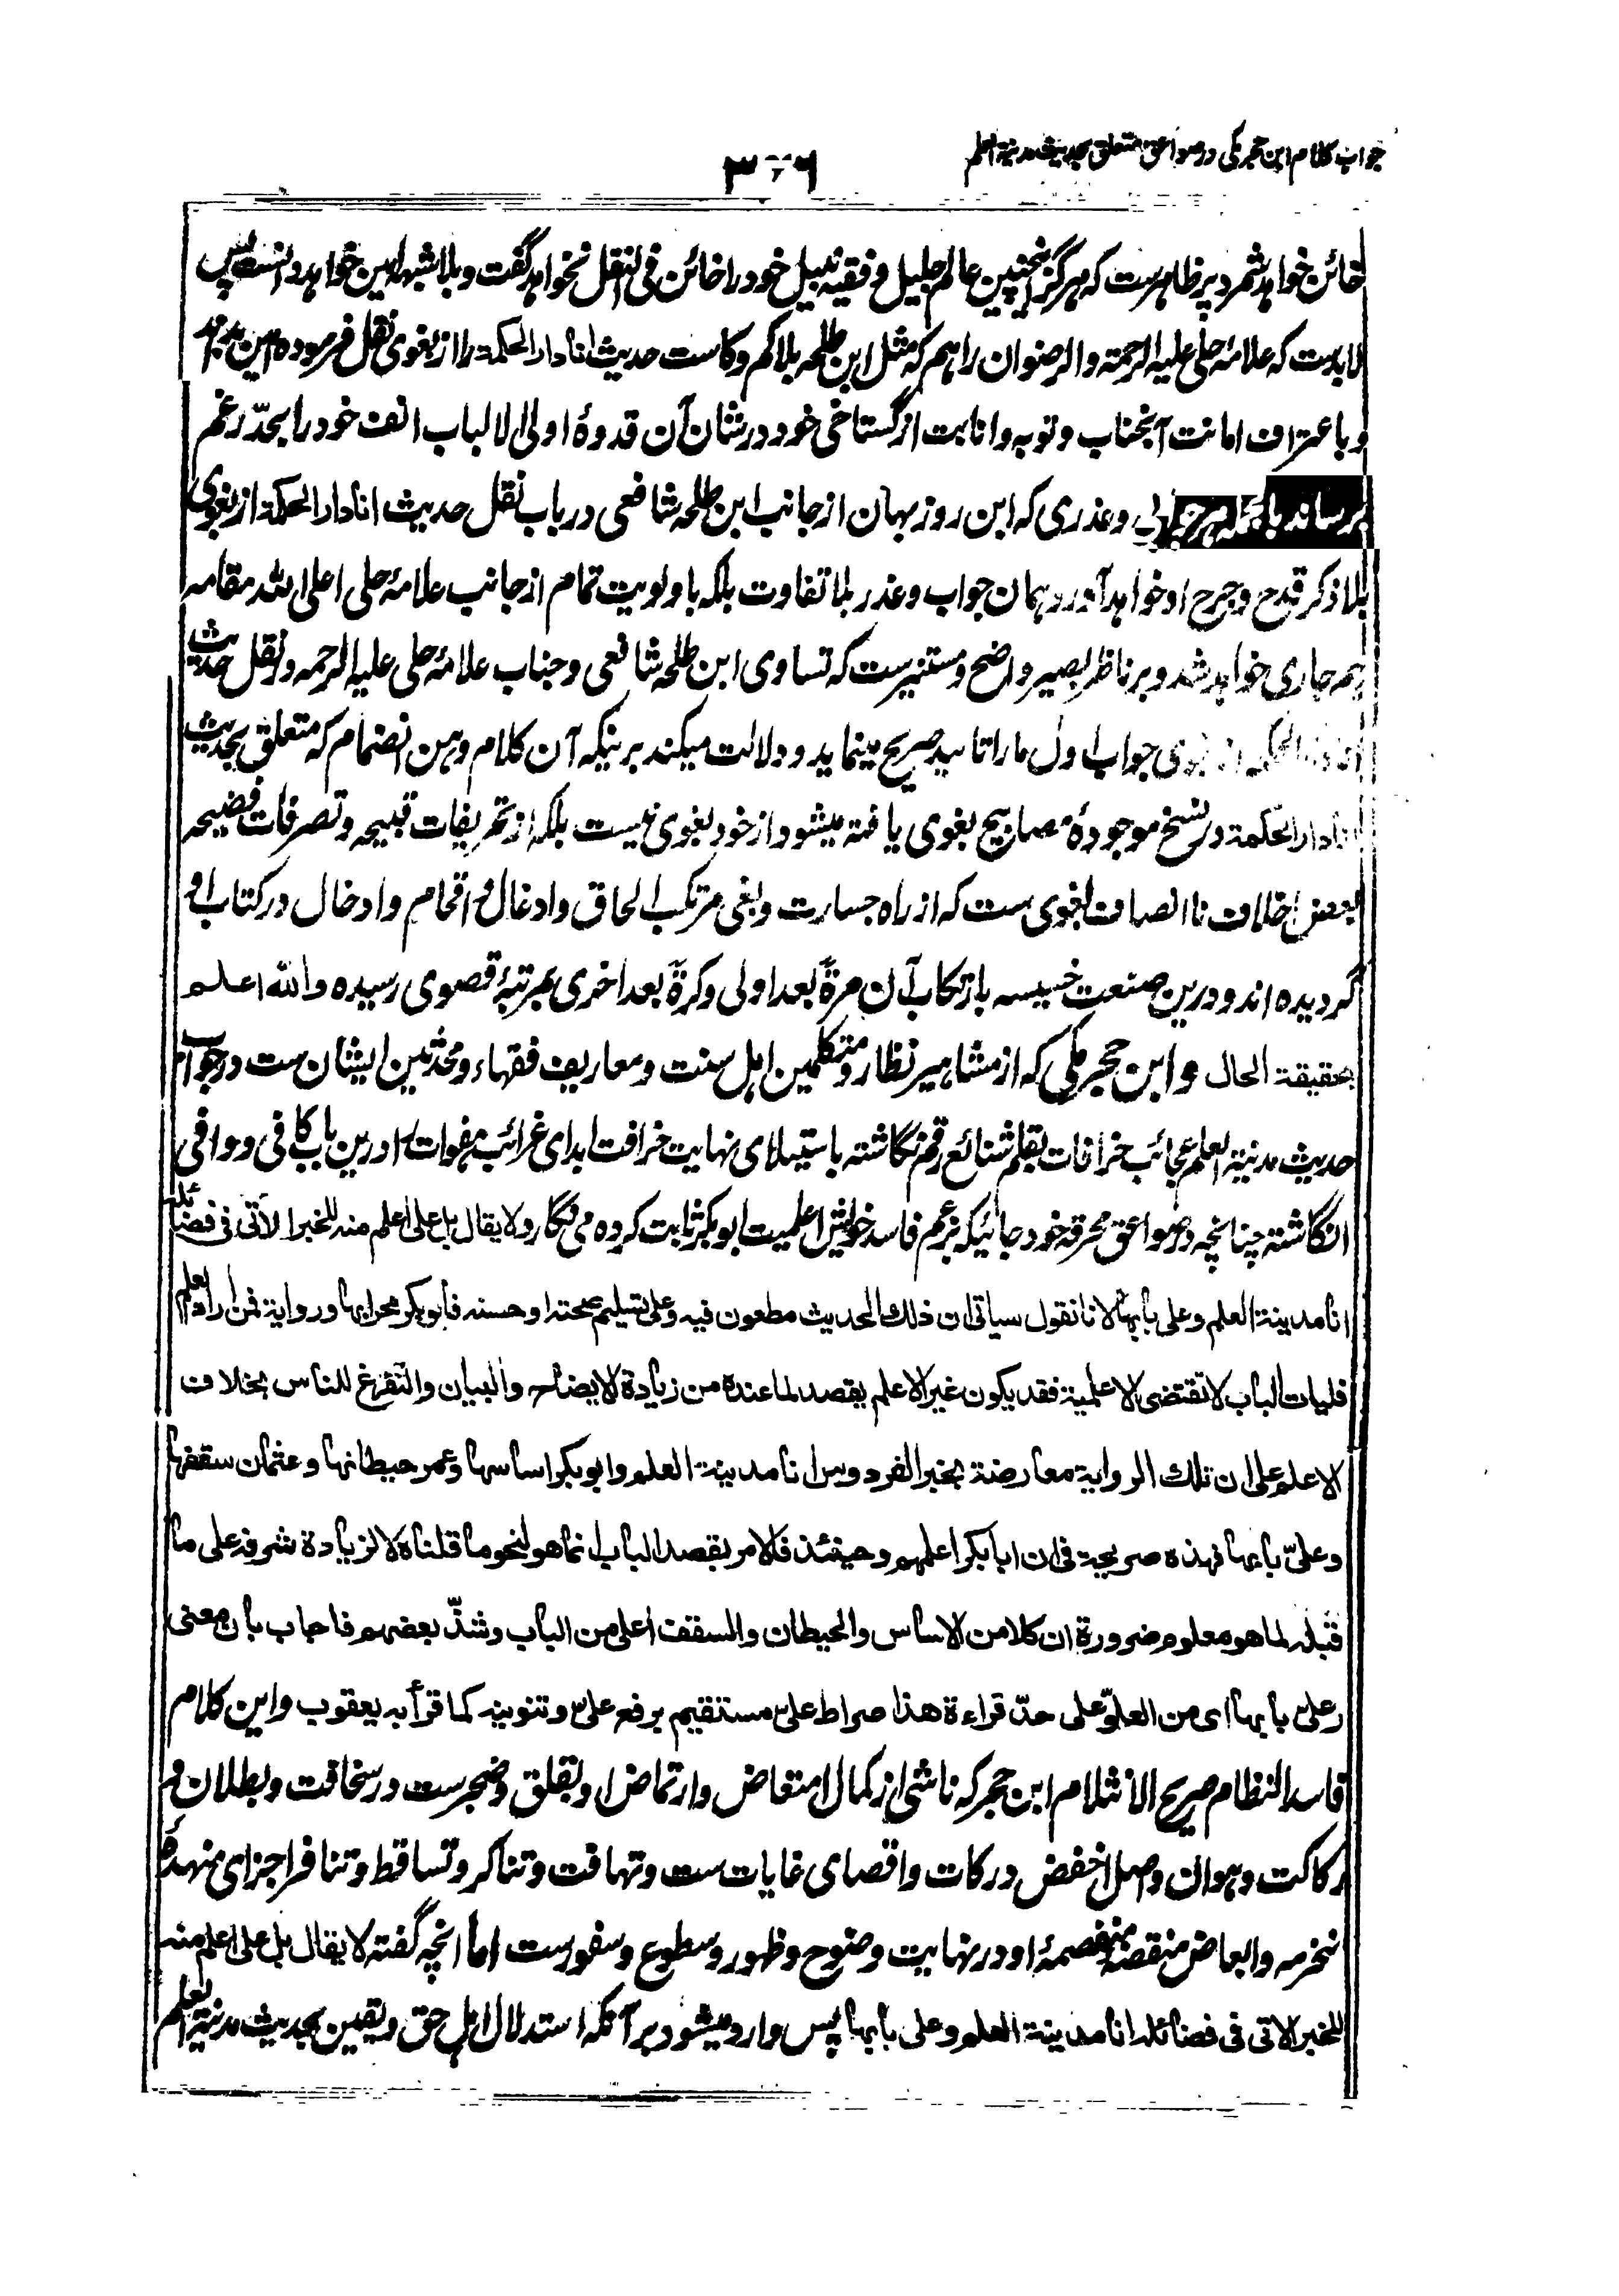 جواب کلام ابن حجر مکی در صواعق متعلق بحدیث مدینة العلم
خائن خواهد شمرد پر ظاهرست که هرگز اینچنین عالم جلیل و فقیه نبیل خود را خائن فی النقل نخواهد گفت و بلا شبهه امین خواهد دانست پس
لابدست که علامهٔ حلی علیه الرحمة والرضوان را هم که مثل ابن طلحه بلا کم و کاست حدیث انا دار الحکمة را از بغوی نقل فرموده امین
و باعتراف امانت آنجناب و توبه و انابت از گستاخی خود در شان آن قدوهٔ اولی الالباب انف خود را بحدّ رغم
برساند بالجمله هر جوابی و عذری که ابن روزبهان از جانب ابن طلحه شافعی در باب نقل حدیث انا دار الحکمة از بغوی
بلا ذکر قدح و جرح او خواهد آورد همان جواب و عذر بلا تفاوت بلکه باولویت تمام از جانب علامهٔ حلی اعلی الله مقامه
هم جاری خواهد شد و بر ناظر بصیر واضح و مستنیرست که تساوی ابن طلحه شافعی و جناب علامهٔ حلی علیه الرحمه در نقل حدیث
انا دار الحکمه از بغوی جواب اول ما را تائید صریح مینماید و دلالت میکند برینکه آن کلام وهن انضمام که متعلق بحدیث
انا دار الحکمة در نسخ موجودهٔ مصابیح بغوی یافته میشود از خود بغوی نیست بلکه از تحریفات قبیحه و تصرفات فضیحه
بعض اخلاف نا انصاف بغوی ست که از راه جسارت و بغی مرتکب الحاق و ادغال و اقحام و ادخال در کتاب او
گردیده اند و درین صنعت خسیسه بارتکاب آن مرةً بعد اولی و کرةً بعد اخری بمرتبهٔ قصوی رسیده والله اعلم
بحقیقة الحال و ابن حجر مکی که از مشاهیر نظار و متکلمین اهل سنت و معاریف فقهاء و محدّثین ایشان ست در جواب
حدیث مدینة العلم عجائب خرافات بقلم شنائع رقم نگاشته باستیلای نهایت خرافت ابدای غرائب هفوات را درین باب کافی و وافی
انگاشته چنانچه در صواعق محرقه خود جائیکه بزعم فاسد خویش اعلمیت ابوبکر ثابت کرده می نگارد ولا یقال بل علی اعلم منه للخبر الآتی فی فضائله
انا مدینة العلم وعلی بابها لانا نقول سیاتی ان ذلک الحدیث مطعون فیه وعلی تسلیم صحته او حسنه فابوبکر محرابها وروایة فمن اراد العلم
فلیات الباب لا تقتضی الاعلمیة فقد یکون غیر الاعلم یقصد لما عنده من زیادة الایضاح والبیان والتفرغ للناس بخلاف
الاعلم علی ان تلک الروایة معارضة بخبر الفردوس انا مدینة العلم وابوبکر اساسها وعمر حیطانها وعثمان سقفها
وعلیّ بابها فهذه صریحة فی ان ابابکر اعلمهم وحینئذ فالامر بقصد الباب انما هو لنحو ما قلناه لا لزیادة شرفه علی ما
قبله لما هو معلوم ضرورة ان کلا من الاساس والحیطان والسقف اعلی من الباب وشذّ بعضهم فاجاب بان معنی
وعلیّ بابها ای من العلوّ علی حدّ قراءة هذا صراط علیّ مستقیم برفع علیّ وتنوینه کما قرأ به یعقوب و این کلام
فاسد النظام صریح الانثلام ابن حجر که ناشی از کمال امتعاض و ارتماض او و تقلق و ضجرست در سخافت و بطلان و
رکاکت و هوان واصل اخفض درکات و اقصای غایات ست و تهافت و تناکر و تساقط و تنافر اجزای منهدمهٔ
منخرمه و ابعاض منقصمهٔ منفصمهٔ او در نهایت وضوح و ظهور و سطوع و سفورست اما آنچه گفته لا یقال بل علی اعلم منه
للخبر الآتی فی فضائله انا مدینة العلم وعلی بابها پس وارد میشود بر آنکه استدلال اهل حق و یقین بحدیث مدینة العلم